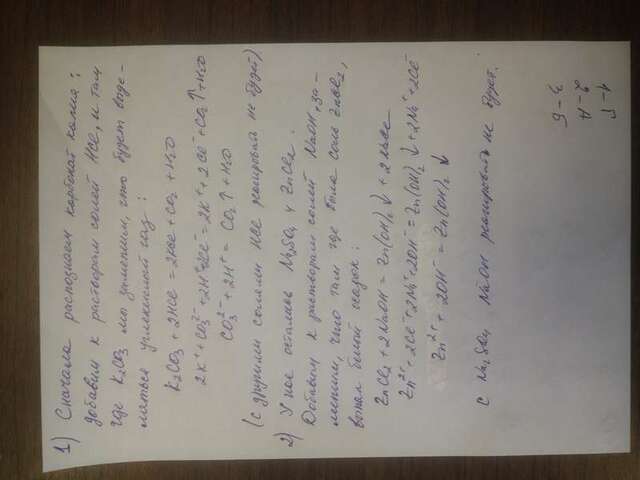 1) Сначала распознаем карбонат калия:
добавим к растворам солей HCl, и там
где K2CO3 мы заметим, что будет выде-
ляться углекислый газ:
K2CO3 + 2HCl = 2KCl + CO2 + H2O
2K⁺ + CO3²⁻ + 2H⁺ + 2Cl⁻ = 2K⁺ + 2Cl⁻ + CO2↑ + H2O
CO3²⁻ + 2H⁺ = CO2↑ + H2O
(с другими солями HCl реагировать не будет)
2) У нас остались Na2SO4 и ZnCl2.
Добавим к растворам солей NaOH + за-
метим, что там где была соль ZnCl2,
выпал белый осадок:
ZnCl2 + 2NaOH = Zn(OH)2↓ + 2NaCl
Zn²⁺ + 2Cl⁻ + 2Na⁺ + 2OH⁻ = Zn(OH)2↓ + 2Na⁺ + 2Cl⁻
Zn²⁺ + 2OH⁻ = Zn(OH)2↓
С Na2SO4 NaOH реагировать не будет.
1-
2-
3-Б